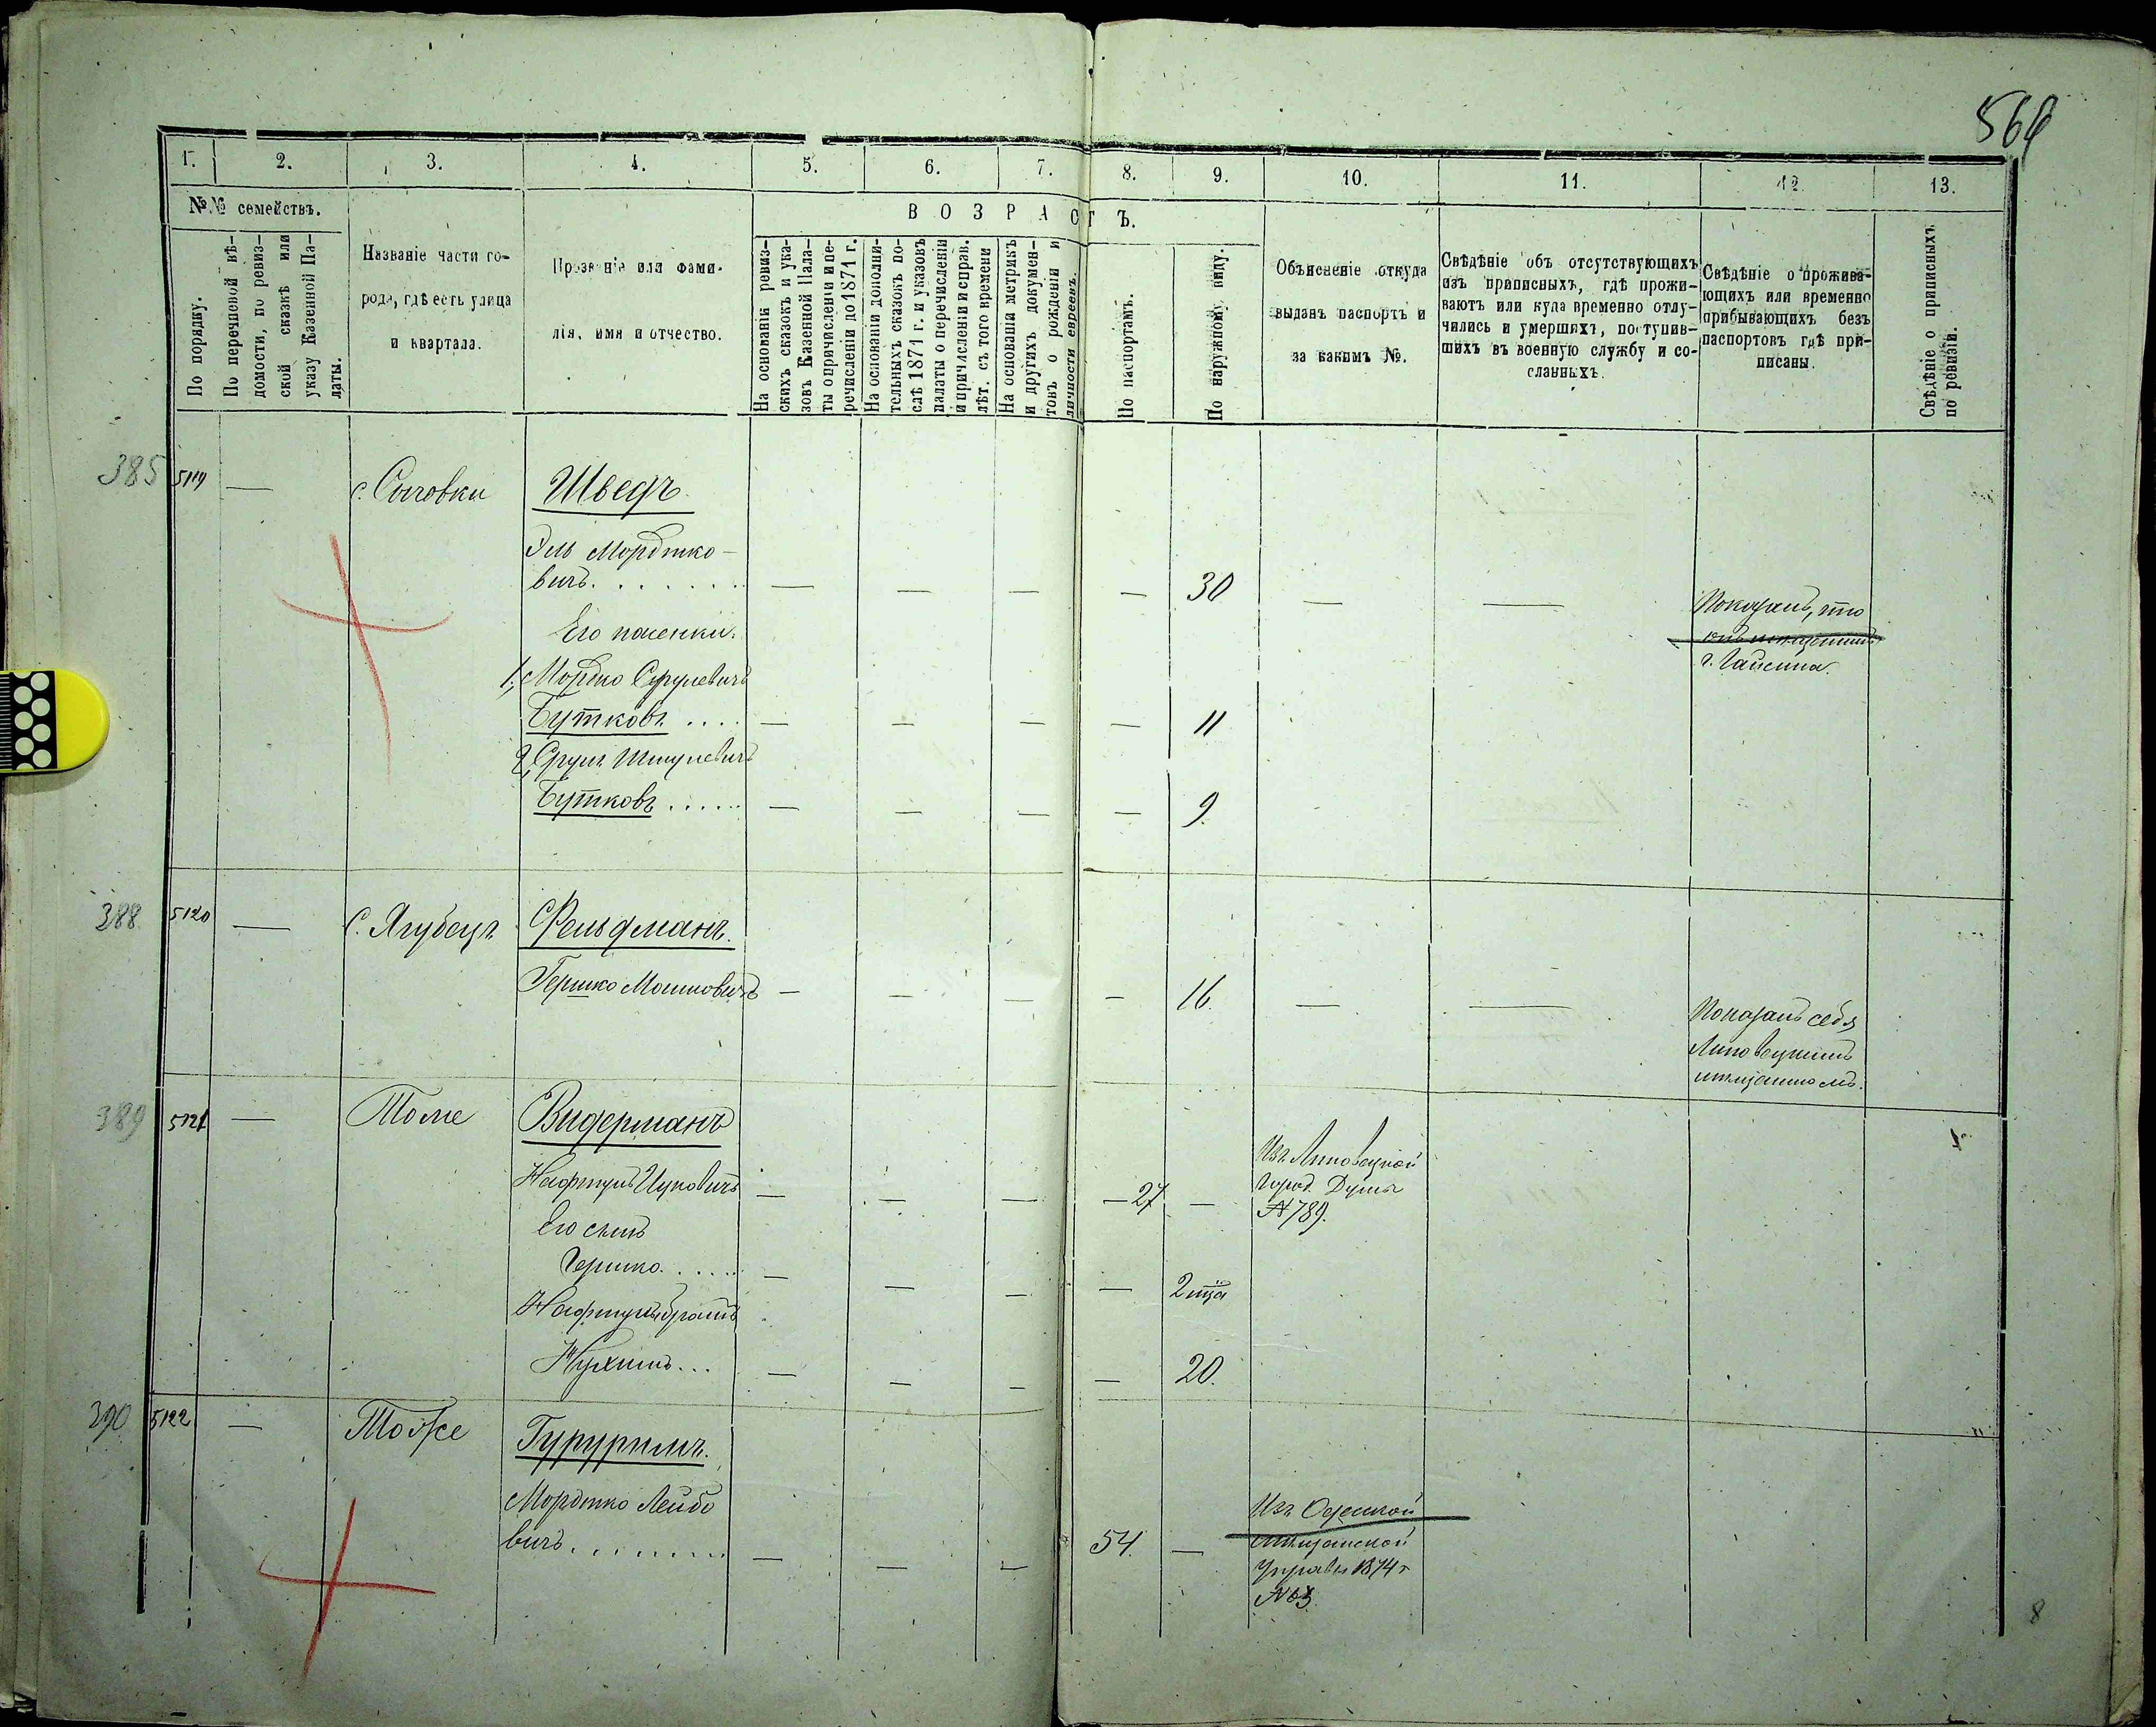 566
1.
2.
3.
4.
5.
6.
7.
8.
9.
10.
11.
12.
13.
№№ семействъ.
ВОЗРАСТЪ.
По порядку.
По перечневой вѣ-
домости, по ревиз-
ской сказкѣ или
указу Казенной Па-
латы.
Названіе части го-
рода, гдѣ есть улица
и квартала.
Прозваніе или фами-
лія, имя и отчество.
На основаніи ревиз-
скихъ сказокъ и ука-
зовъ Казенной Пала-
ты о причисленіи и пе-
речисленіи до 1871 г.
На основаніи дополни-
тельныхъ сказокъ по-
слѣ 1871 г. и указовъ
палаты о перечисленіи
и причисленіи и справ.
лѣт. съ того времени
На основаніи метрикъ
и другихъ докумен-
товъ о рожденіи и
личности евреевъ.
По паспортамъ.
По наружному виду.
Объясненіе откуда
выданъ паспортъ и
за какимъ №.
Свѣдѣніе объ отсутствующихъ
изъ приписныхъ, гдѣ прожи-
ваютъ или куда временно отлу-
чились и умершихъ, поступив-
шихъ въ военную службу и со-
сланныхъ.
Свѣдѣніе о прожива-
ющихъ или временно
прибывающихъ безъ
паспортовъ гдѣ при-
писаны.
Свѣдѣніе о приписныхъ
по ревизіи.
385 5119 — с. Сычовки Шведъ.
Эль Мордтко-
вичъ. — — — — 30 — — Показалъ, что
г. Гайсина.
Его пасенки.
1, Мордко Срулевичъ
Бутковъ. — — — — 11
2, Сруль Шмулевичъ
Бутковъ — — — — 9.
388 5120 — С. Ягубецъ Фельдманъ.
Гершко Мошковичъ — — — — 16. — — Показалъ себя
Липовецкимъ
мѣщаниномъ.
389 5121 — Тоже Видерманъ
Нафтулъ Ицковичъ — — — — 27 — Изъ Липовецкой
Город. Думы
№ 789.
Его сынъ
Гершко. — — — — 2 мца
Нафтула братъ
Нухимъ... — — — — 20.
390 5122 — Тоже Гурурипъ.
Мордтко Лейбо
вичъ. — — — 54. — Изъ Одесской
мѣщанской
Управы 1874 г
№ 63.
8